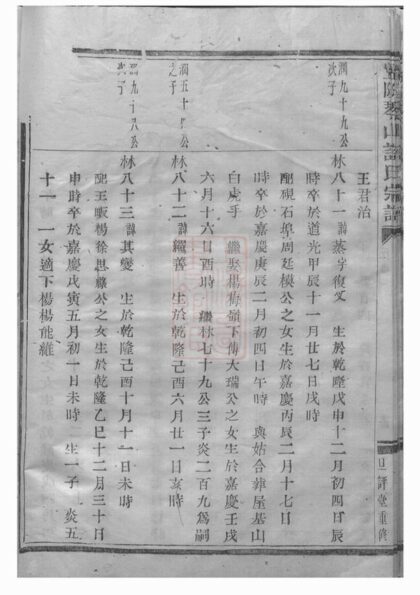 山許氏宗譜
王君治
潤九十九公
次子
林八十一 諱蒸字復文 生於乾隆戊申十二月初四日辰
時卒於道光甲辰十一月廿七日戌時
配硯石埠周廷模公之女生於嘉慶丙辰二月十七日
時卒於嘉慶庚辰二月初四日午時 與姑合葬屋基山
白虎手 繼娶楊梅嶺下傅大瑞公之女生於嘉慶壬戌
六月十六日酉時 繼林七十九公三子炎二百九為嗣
潤五十公
之子
林八十二 諱繼善 生於乾隆己酉六月廿一日亥時
潤九十八公
次子
林八十三 諱其變 生於乾隆己酉十月十一日未時
配王畈楊徐思縣公之女生於乾隆乙巳十二月三十日
申時卒於嘉慶戊寅五月初一日未時 生一子 炎五
十一 一女適下楊楊能維
旦評堂重修